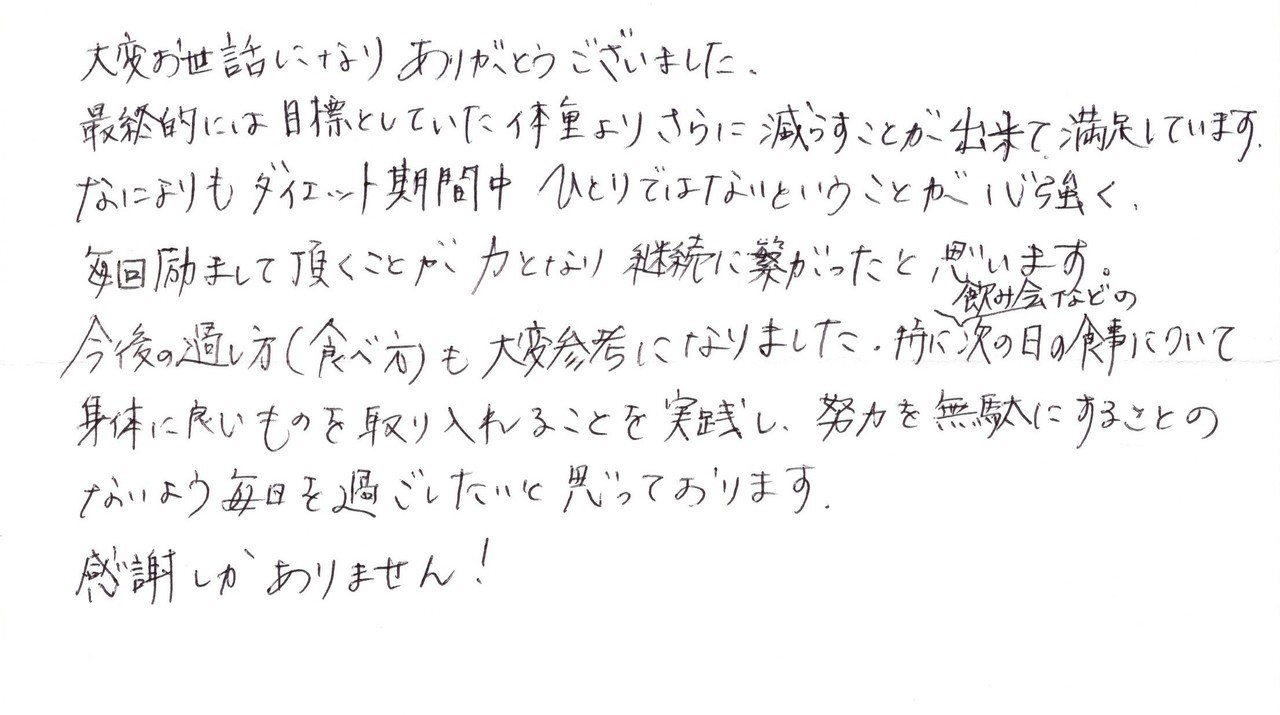 大変お世話になりありがとうございました.
最終的には目標としていた体重よりさらに減らすことが出来て、満足しています.
なによりもダイエット期間中ひとりではないということが心強く、
毎回励まして頂くことが力となり継続に繋がったと思います。
飲み会などの
今後の過し方(食べ方)も大変参考になりました.特に次の日の食事について
身体に良いものを取り入れることを実践し、努力を無駄にすることの
ないよう毎日を過ごしたいと思っております.
感謝しかありません!